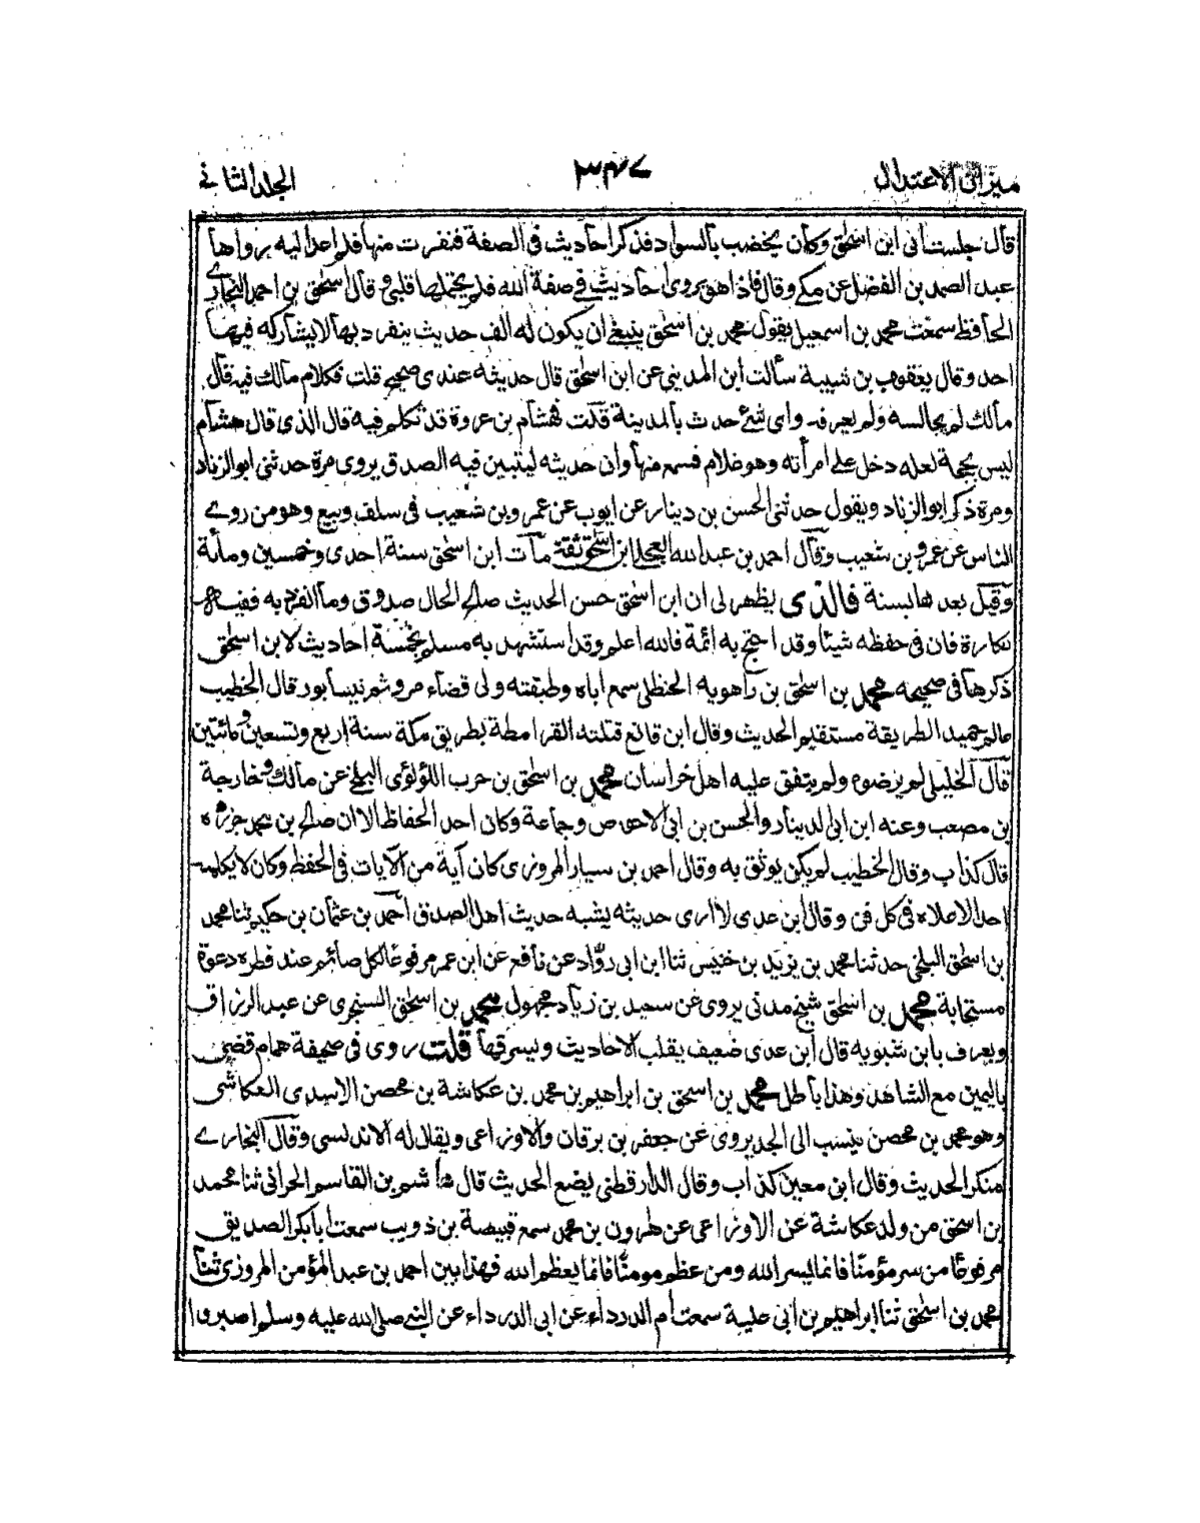 ميزان الاعتدال ٣٤٧ الجلد الثاني
قال جلست الى ابن اسحٰق وكان يخضب بالسواد فذكر احاديث فى الصفة فنفرت منها فلم اعد اليه رواها
عبد الصمد بن الفضل عن مكى وقال فاذا هو يروى احاديث فى صفة الله فلم يحتملها قلبى وقال اسحٰق بن احمد البخارى
الحافظ سمعت محمد بن اسمعيل يقول محمد بن اسحٰق ينبغى ان يكون له الف حديث ينفرد بها لا يشاركه فيها
احد وقال يعقوب بن شيبة سألت ابن المديني عن ابن اسحٰق قال حديثه عندى صحيح قلت فكلام مالك فيه قال
مالك لم يجالسه ولم يعرفه واى شئ حدث بالمدينة قلت فهشام بن عروة قد تكلم فيه قال الذى قال هشام
ليس بحجة لعله دخل على امرأته وهو غلام فسمع منها وان حديثه ليتبين فيه الصدق يروى مرة حدثنى ابو الزناد
ومرة ذكر ابو الزناد ويقول حدثنى الحسن بن دينار عن ايوب عن عمرو بن شعيب فى سلف وبيع وهو من روى
الناس عن عمرو بن شعيب وقال احمد بن عبد الله العجلى ابن اسحٰق ثقة مات ابن اسحٰق سنة احدى وخمسين ومائة
وقيل بعدها بسنة فالذى يظهر لى ان ابن اسحٰق حسن الحديث صالح الحال صدوق وما انفرد به ففيه
نكارة فان فى حفظه شيئا وقد احتج به ائمة فالله اعلم وقد استشهد به مسلم بخمسة احاديث لابن اسحٰق
ذكرها فى صحيحه محمد بن اسحٰق بن راهويه الحنظلى سمع اباه وطبقته ولى قضاء مرو ثم نيسابور قال الخطيب
عالم جميل الطريقة مستقيم الحديث وقال ابن قانع قتلته القرامطة بطريق مكة سنة اربع وتسعين ومائتين
قال الخليلى لم يرضوه ولم يتفق عليه اهل خراسان محمد بن اسحٰق بن حرب اللؤلؤى البلخى عن مالك وخارجة
بن مصعب وعنه ابن ابى الدينار والحسن بن ابى الاحوص وجماعة وكان احد الحفاظ الا ان صالح بن محمد جزره
قال كذاب وقال الخطيب لم يكن يوثق به وقال احمد بن سيار المروزى كان آية من الآيات فى الحفظ وكان لا يكلمه
احد الا علاه فى كل فن وقال ابن عدى لا ارى حديثه يشبه حديث اهل الصدق احمد بن عثمان بن حكيم ثنا محمد
بن اسحٰق البلخى حدثنا محمد بن يزيد بن خنيس ثنا ابن ابى روّاد عن نافع عن ابن عمر مرفوعًا لكل صائم عند فطره دعوة
مستجابة محمد بن اسحٰق شيخ مدنى يروى عن سعيد بن زياد مجهول محمد بن اسحٰق السنجرى عن عبد الرزاق
ويعرف بابن شبويه قال ابن عدى ضعيف يقلب الاحاديث ويسرقها قلت روى فى صحيفة همام قضى
باليمين مع الشاهد وهذا باطل محمد بن اسحق بن ابراهيم بن محمد بن عكاشة بن محصن الاسدى العكاشى
وهو محمد بن محصن ينسب الى الجد يروى عن جعفر بن برقان والاوزاعى ويقال له الاندلسى وقال البخارى
منكر الحديث وقال ابن معين كذاب وقال الدارقطنى يضع الحديث قال هاشم بن القاسم الحرانى ثنا محمد
بن اسحق من ولد عكاشة عن الاوزاعى عن هٰرون بن محمد سمع قبيصة بن ذويب سمعت ابا بكر الصديق
مرفوعًا من سر مؤمنًا فانما يسر الله ومن عظم مومنًا فانما يعظم الله فهذا بين احمد بن عبد المؤمن المروزى ثنا
محمد بن اسحٰق ثنا ابراهيم بن ابى علية سمعت ام الدرداء عن ابى الدرداء عن النبى صلى الله عليه وسلم اصبروا